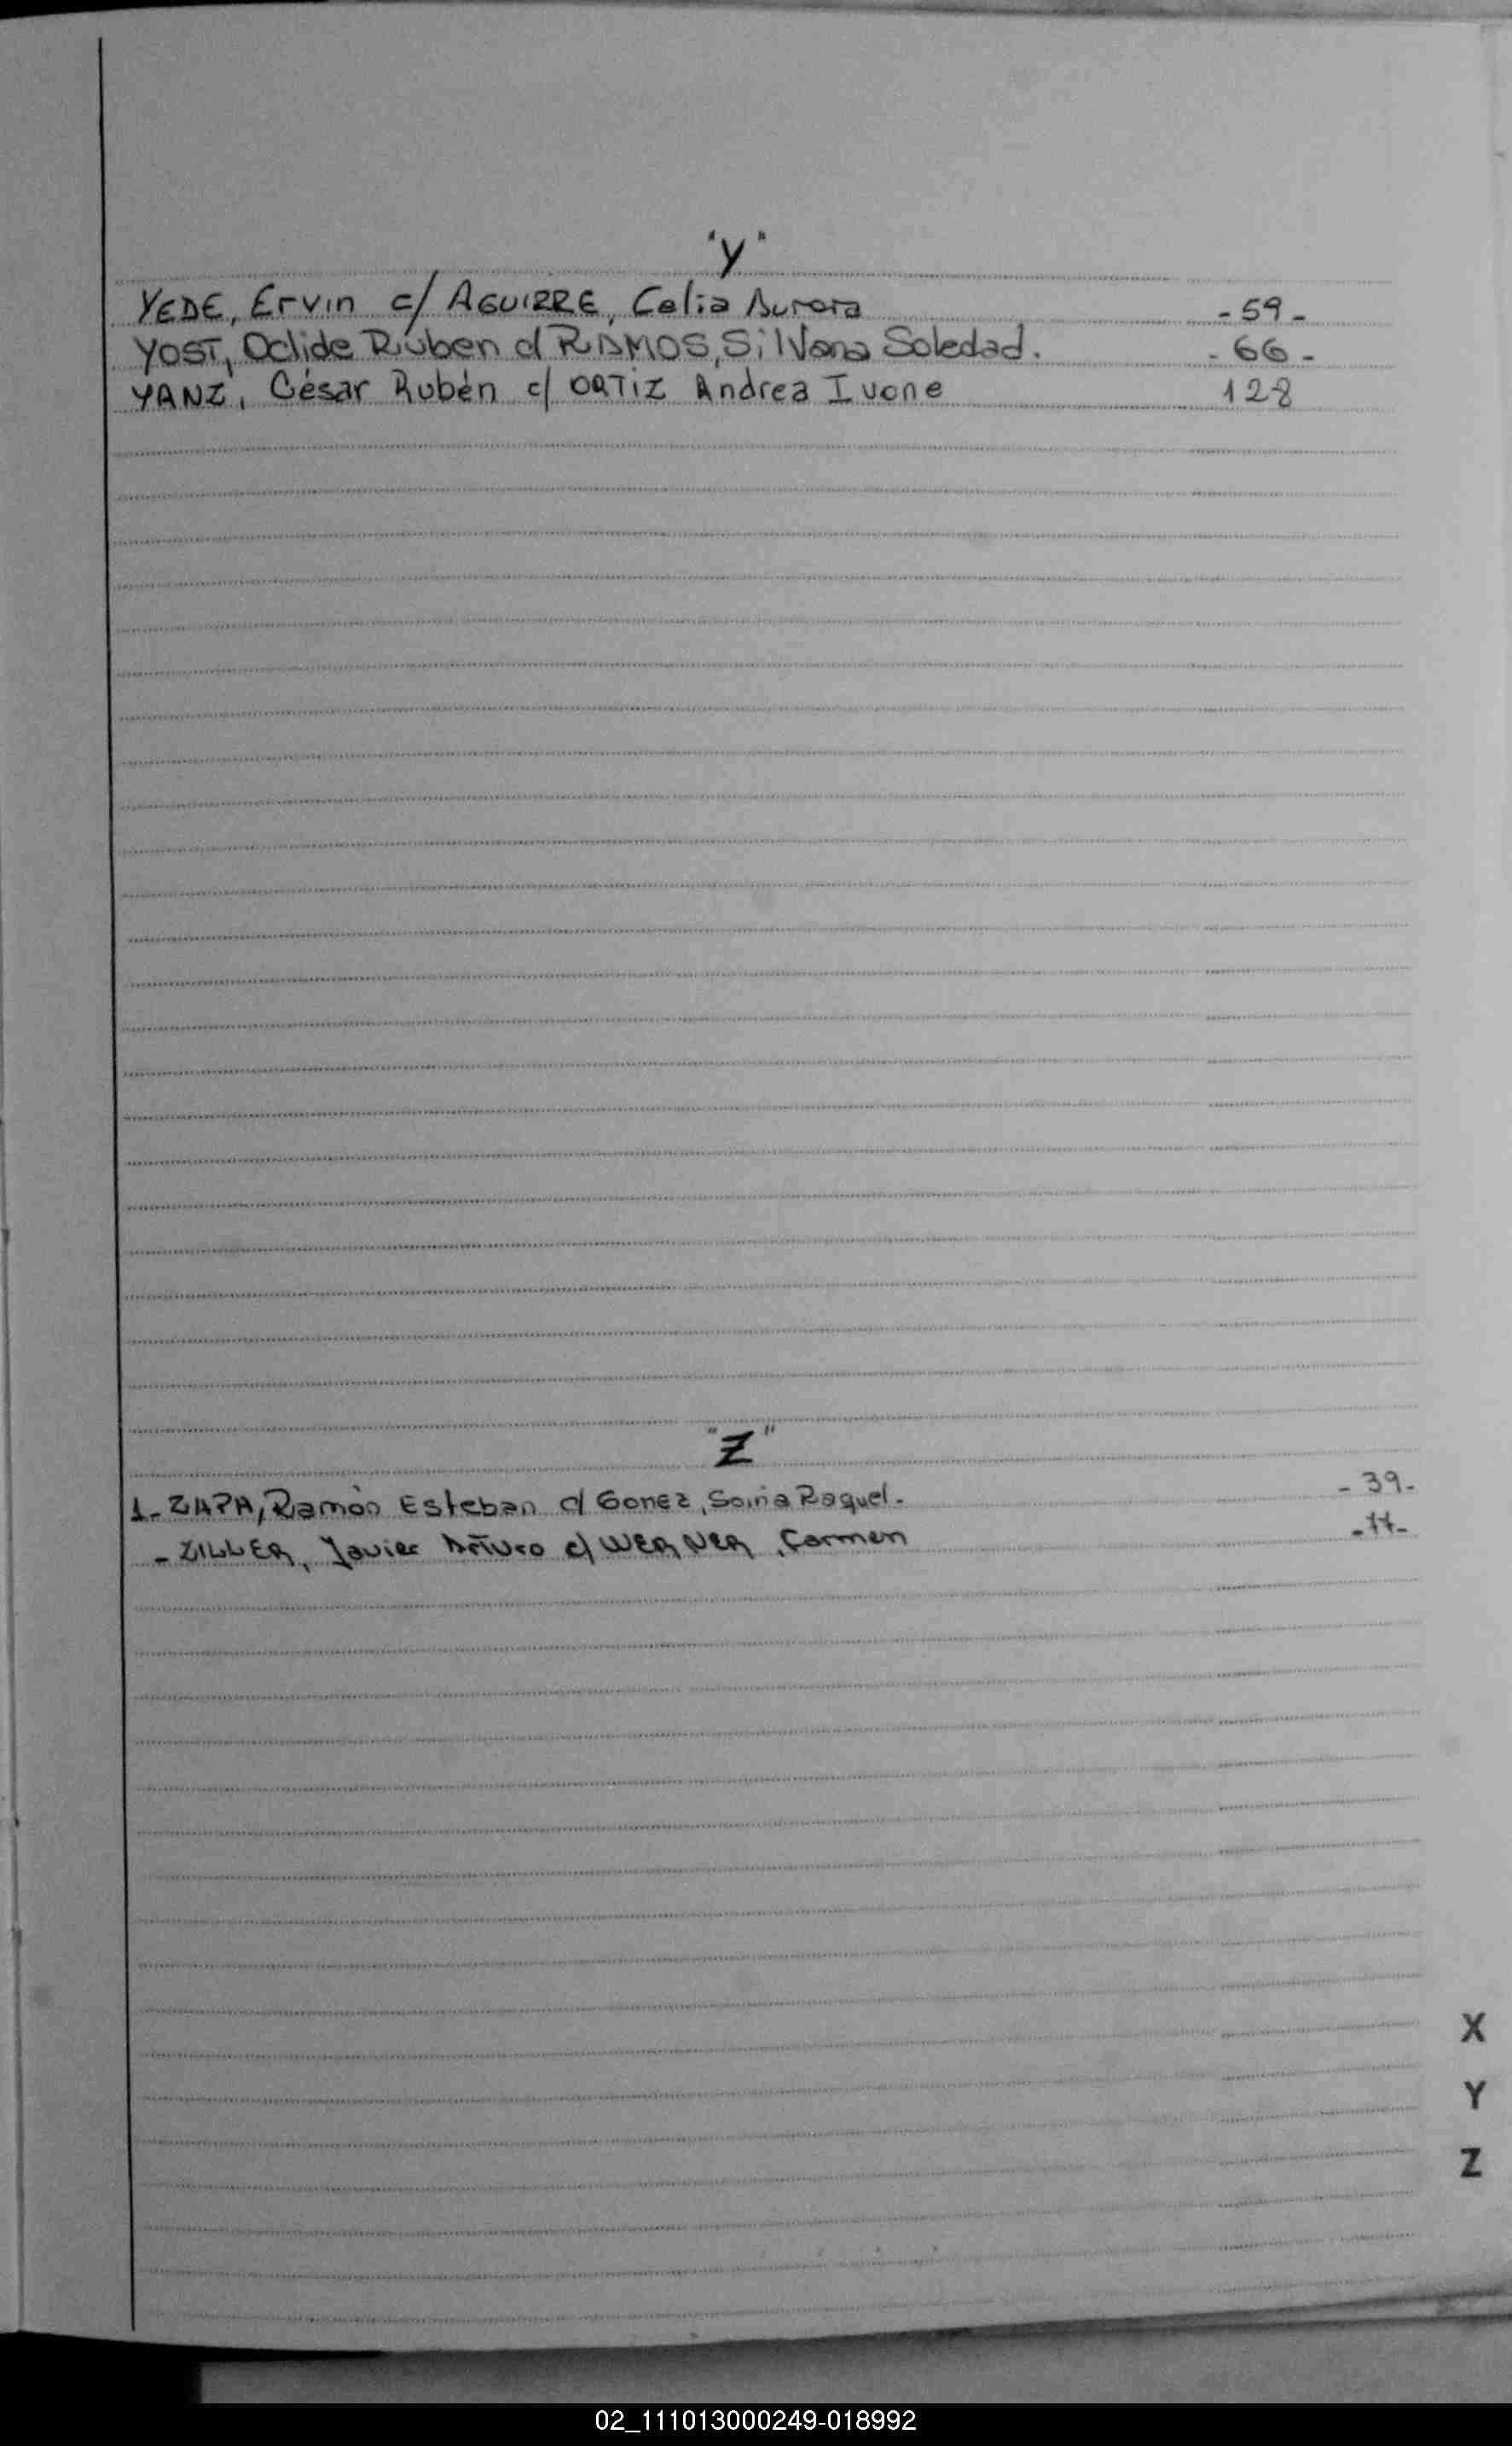 "Y"
YEDE, Ervin c/ AGUIRRE, Celia Aurora -59-
YOST, Oclide Ruben c/ RAMOS, Silvana Soledad. -66-
YANZ, César Rubén c/ ORTIZ Andrea Ivone 128
"Z"
1- ZAPA, Ramón Esteban c/ Gomez, Sonia Raquel. -39-
- ZILLER, Javier Arturo c/ WERNER, Carmen
X
Y
Z
02_111013000249-018992